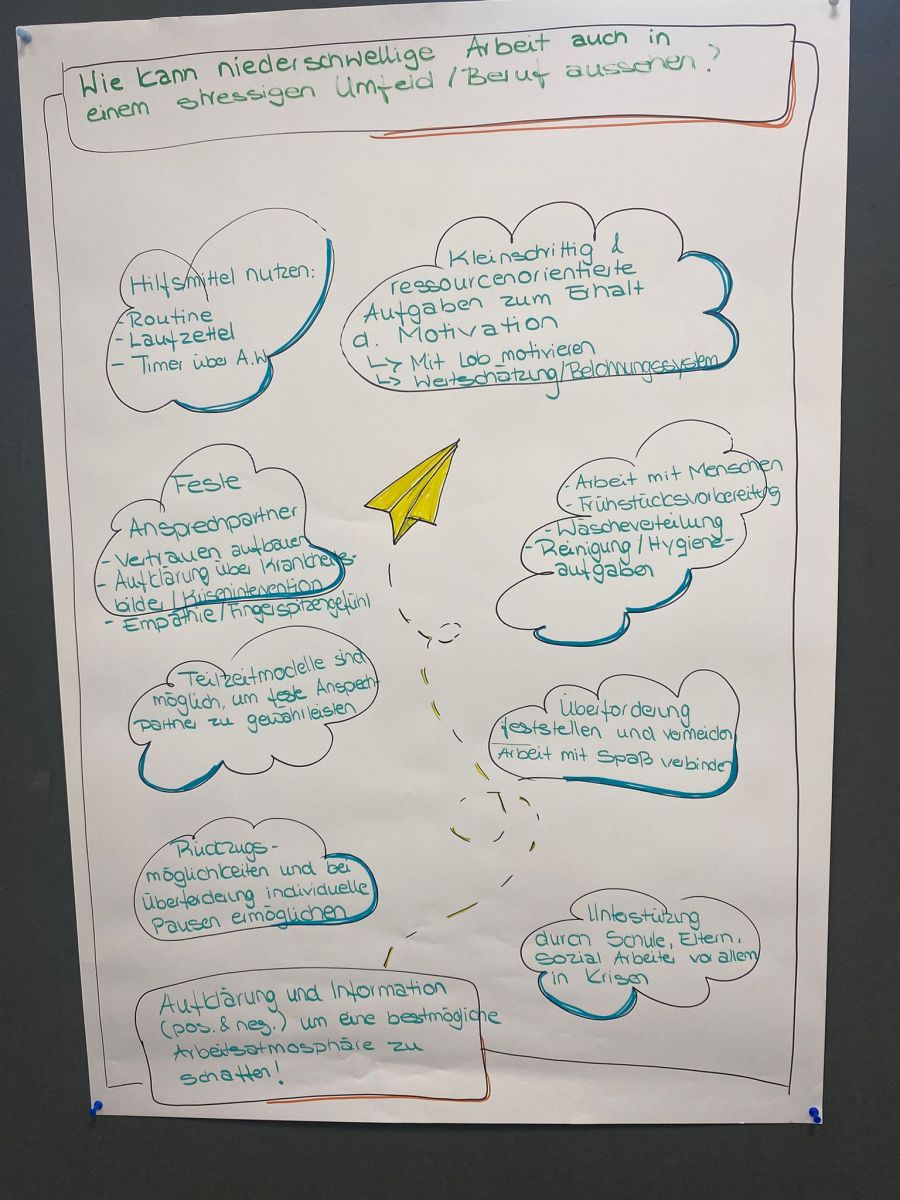 Wie kann niederschwellige Arbeit auch in
einem stressigen Umfeld / Beruf aussehen?
Hilfsmittel nutzen:
- Routine
- Laufzettel
- Timer über A.W
Kleinschrittig &
ressourcenorientierte
Aufgaben zum Erhalt
d. Motivation
↳ Mit Lob motivieren
↳ Wertschätzung/Belohnungssystem
Feste
Ansprechpartner
- Vertrauen aufbauen
- Aufklärung über Krankheits-
bilder / Krisenintervention
- Empathie/Fingerspitzengefühl
- Arbeit mit Menschen
- Frühstücksvorbereitung
- Wäscheverteilung
- Reinigung / Hygiene-
aufgaben
Teilzeitmodelle sind
möglich, um feste Ansprech-
partner zu gewährleisten
Überforderung
feststellen und vermeiden
Arbeit mit Spaß verbinden
Rückzugs-
möglichkeiten und bei
Überforderung individuelle
Pausen ermöglichen
Unterstützung
durch Schule, Eltern,
Sozial Arbeiter vor allem
in Krisen
Aufklärung und Information
(pos. & neg.) um eine bestmögliche
Arbeitsatmosphäre zu
schaffen!